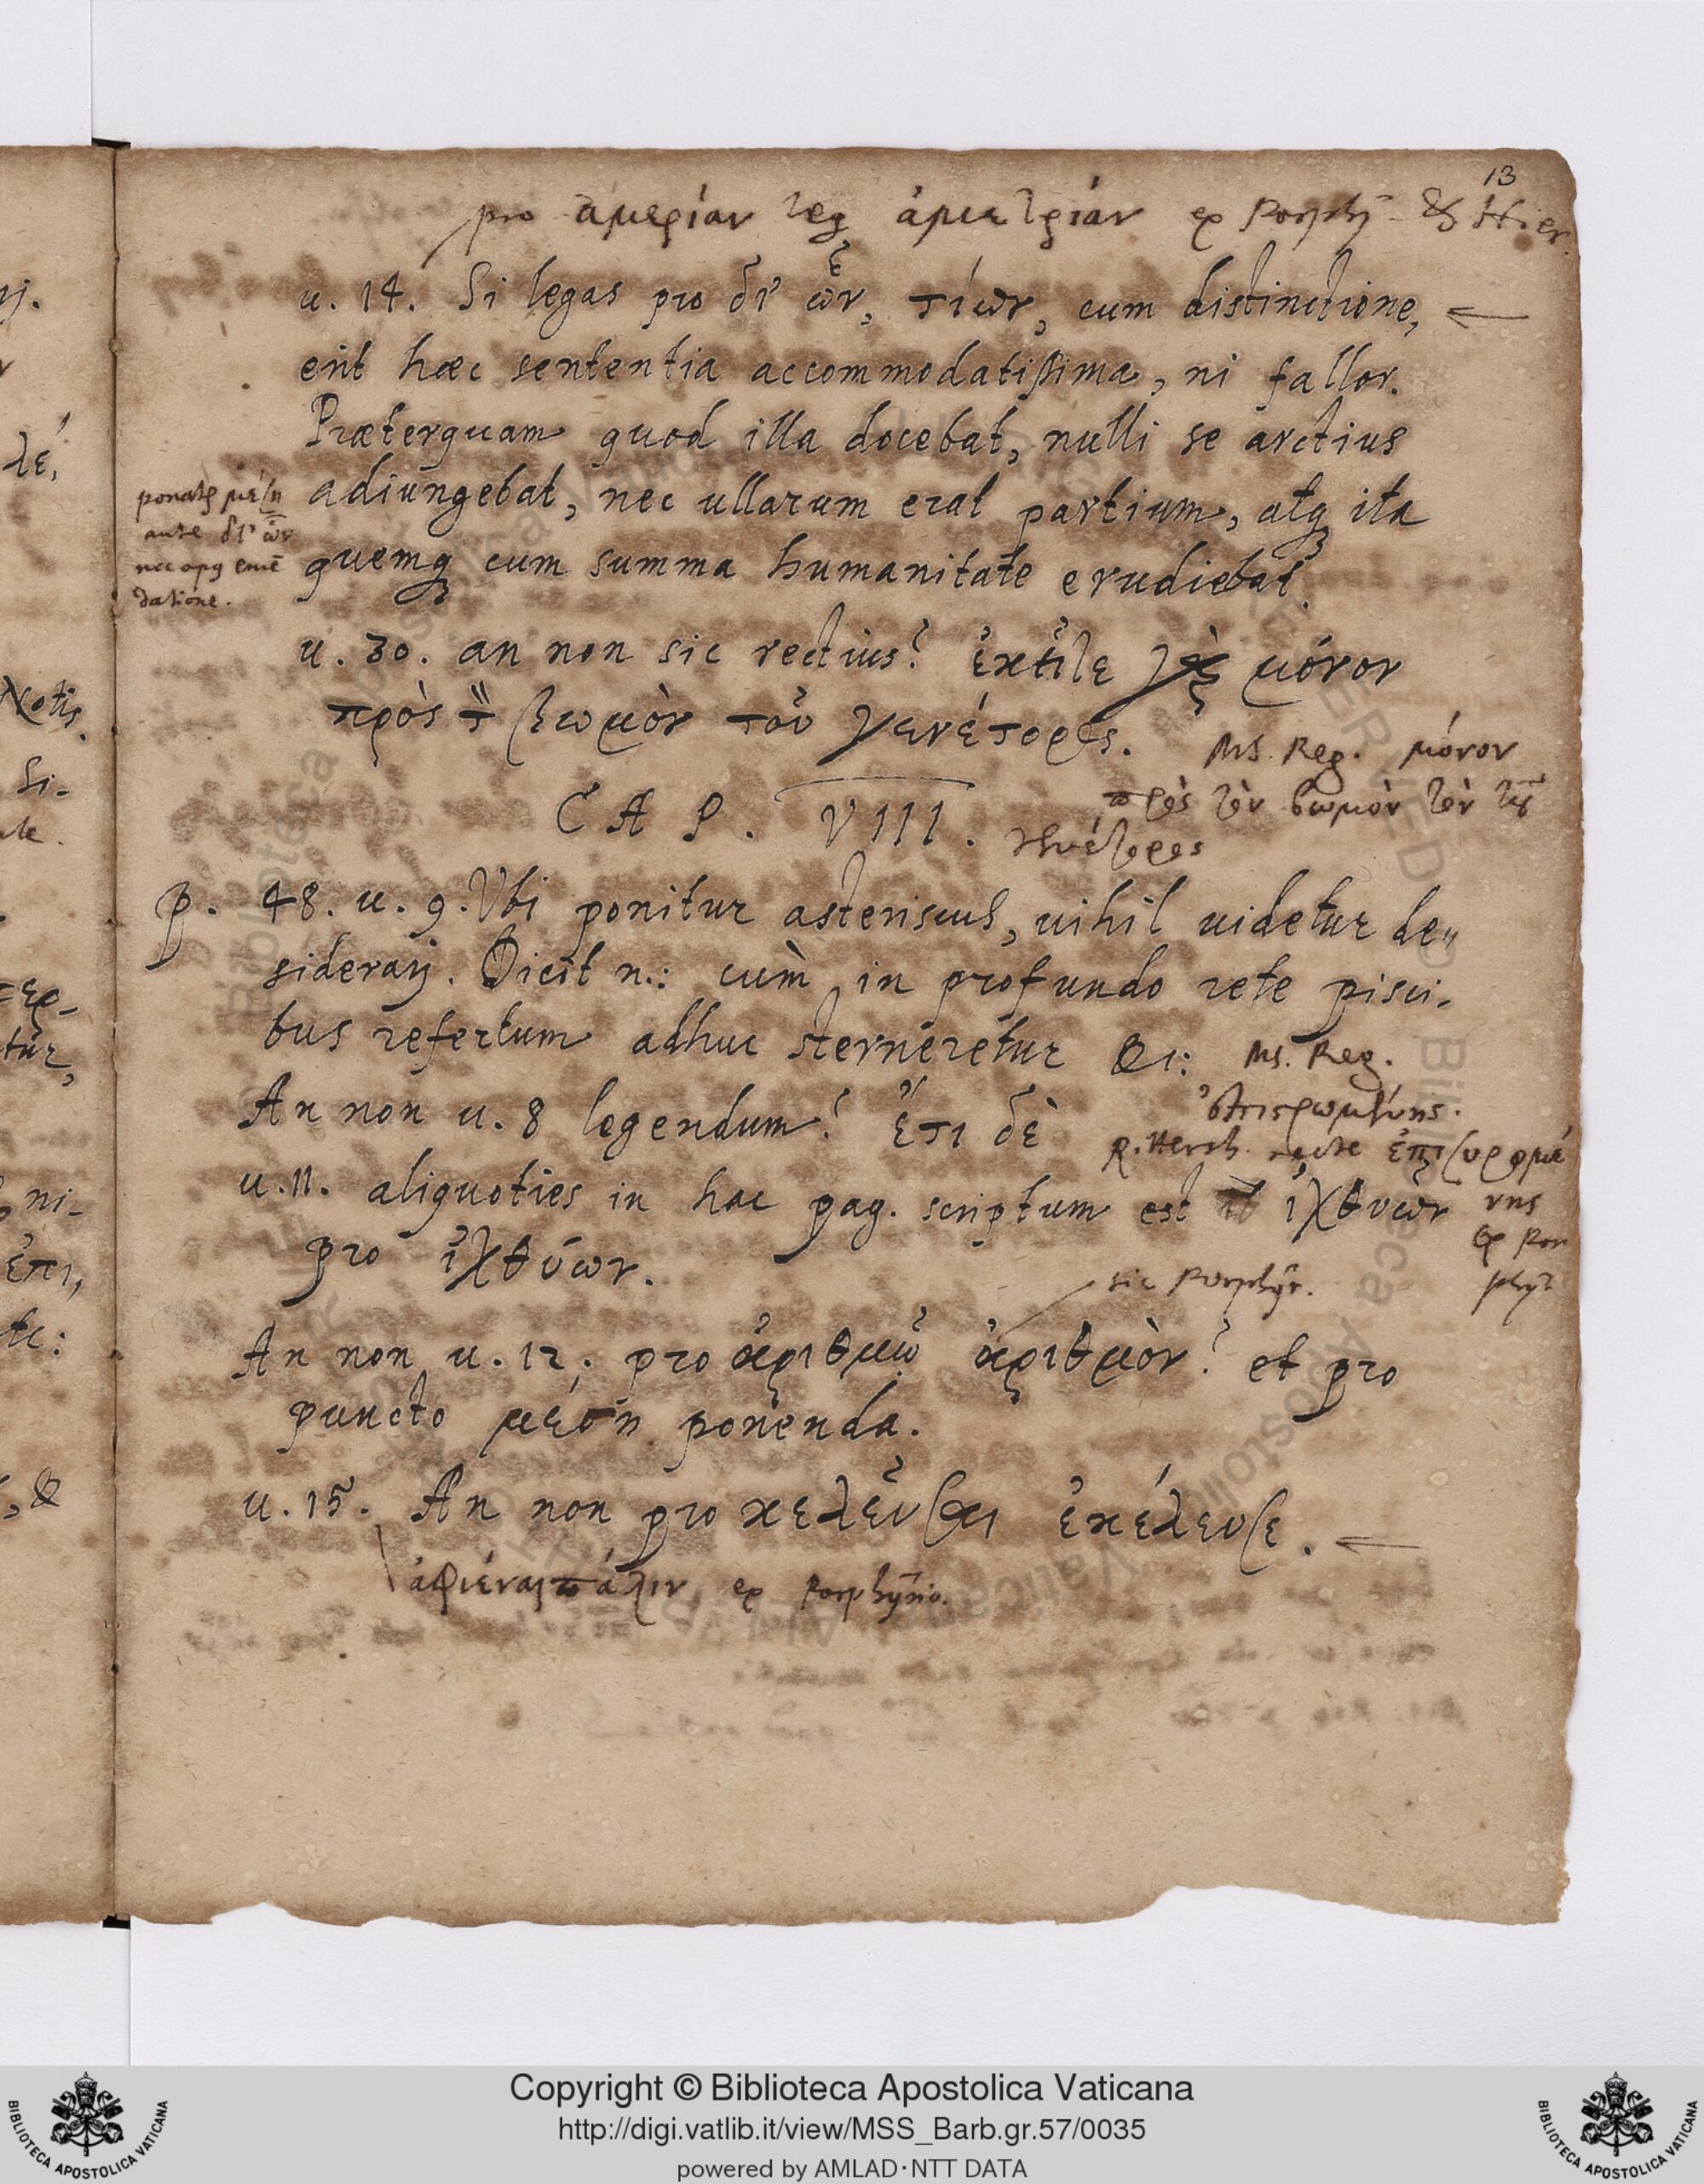 13
pro ἀμερίαν leg ἀμετρίαν ex Porphy. & Hier.
u. 14. Si legas pro δι' ὧν, τίων, cum distinctione,
erit hæc sententia accommodatißima, ni fallor.
Præterquam quod illa docebat, nulli se arctius
adiungebat, nec ullarum erat partium, atq ita
quemq cum summa humanitate erudiebat.
ponat μέση
ante δι' ὧν
nec opq emē
datione.
u. 30. an non sic rectius? ἐκτίλε μόνον
πρὸς τ̀ βωμὸν τοῦ γενέτορος.
Ms. Reg. μόνον
πρὸς τὸν βωμὸν τὸν τοῦ
γενέτορος
CAP. VIII.
p. 48. u. 9. Vbi ponitur asteriscus, nihil uidetur de"
siderarj. Dicit n.: cùm in profundo rete pisci-
bus refertum adhuc sterneretur &c:
Ms. Reg.
An non u. 8 legendum? ἔτι δὲ
R. Hersh. ἐπισυρομέ
νης
ex Por
phyr
u. 11. aliquoties in hac pag. scriptum est ἰχθυῶν
pro ἰχθύων.
sic Porphyr.
An non u. 12, pro ἀριθμῷ ἀριθμὸν? et pro
puncto μέση ponenda.
u. 15. An non pro κελεῦσαι ἐκέλευσε.
ἀφιέναι πάλιν ex Porphyrio.
Copyright © Biblioteca Apostolica Vaticana
http://digi.vatlib.it/view/MSS_Barb.gr.57/0035
powered by AMLAD·NTT DATA
BIBLIOTECA APOSTOLICA VATICANA
BIBLIOTECA APOSTOLICA VATICANA